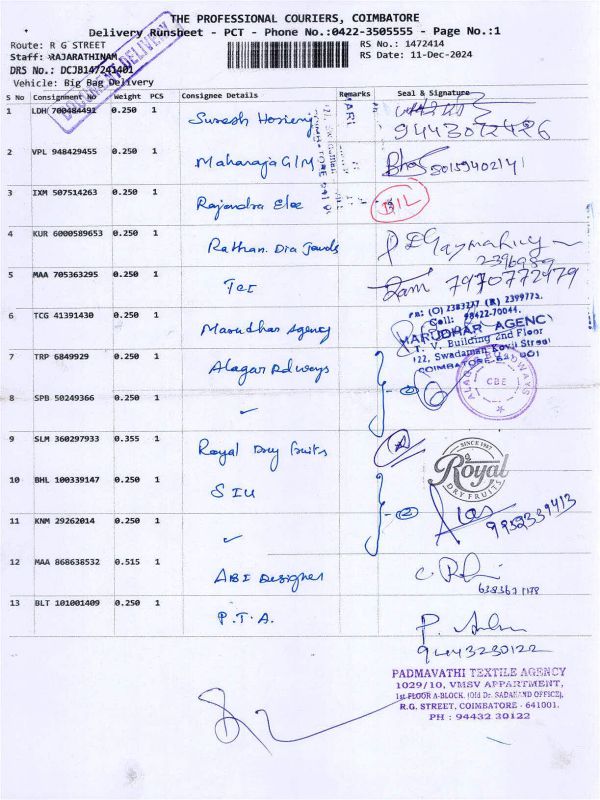 THE PROFESSIONAL COURIERS, COIMBATORE
Delivery Runsheet - PCT - Phone No.:0422-3505555 - Page No.:1
Route: R G STREET
RS No.: 1472414
Staff: RAJARATHINAM
RS Date: 11-Dec-2024
DRS No.: DCJB147241401
Vehicle: Big Bag Delivery
S No Consignment No Weight PCS Consignee Details Remarks Seal & Signature
1 LDH 700484491 0.250 1 Suresh Hosiery
9443072426
2 VPL 948429455 0.250 1 Maharaja G/M
50159402141
3 IXM 507514263 0.250 1 Rajendra Elec
BIL
4 KUR 6000589653 0.250 1 Rathan. Dia Jewels
2396989
5 MAA 705363295 0.250 1 TCI
Ram 7970772979
6 TCG 41391430 0.250 1 Marudhar Agency
PH: (O) 2383277 (R) 2399773.
Cell: 98422-70044.
MARUDHAR AGENCY
T. V. Building 2nd Floor
122, Swadaman Kovil Street
COIMBATORE 641 001
7 TRP 6849929 0.250 1 Alagar Rdways
2
CBE
8 SPB 50249366 0.250 1
9 SLM 360297933 0.355 1 Royal Dry fruits
SINCE 1967
Royal
DRY FRUITS
10 BHL 100339147 0.250 1 SIU
2
9952339413
11 KNM 29262014 0.250 1
12 MAA 868638532 0.515 1 ABI Designer
13 BLT 101001409 0.250 1 P.T.A.
9443230122
PADMAVATHI TEXTILE AGENCY
1029/10, VMSV APPARTMENT,
1st FLOOR A-BLOCK, (Old Dr. SADANAND OFFICE),
R.G. STREET, COIMBATORE - 641001.
PH : 94432 30122